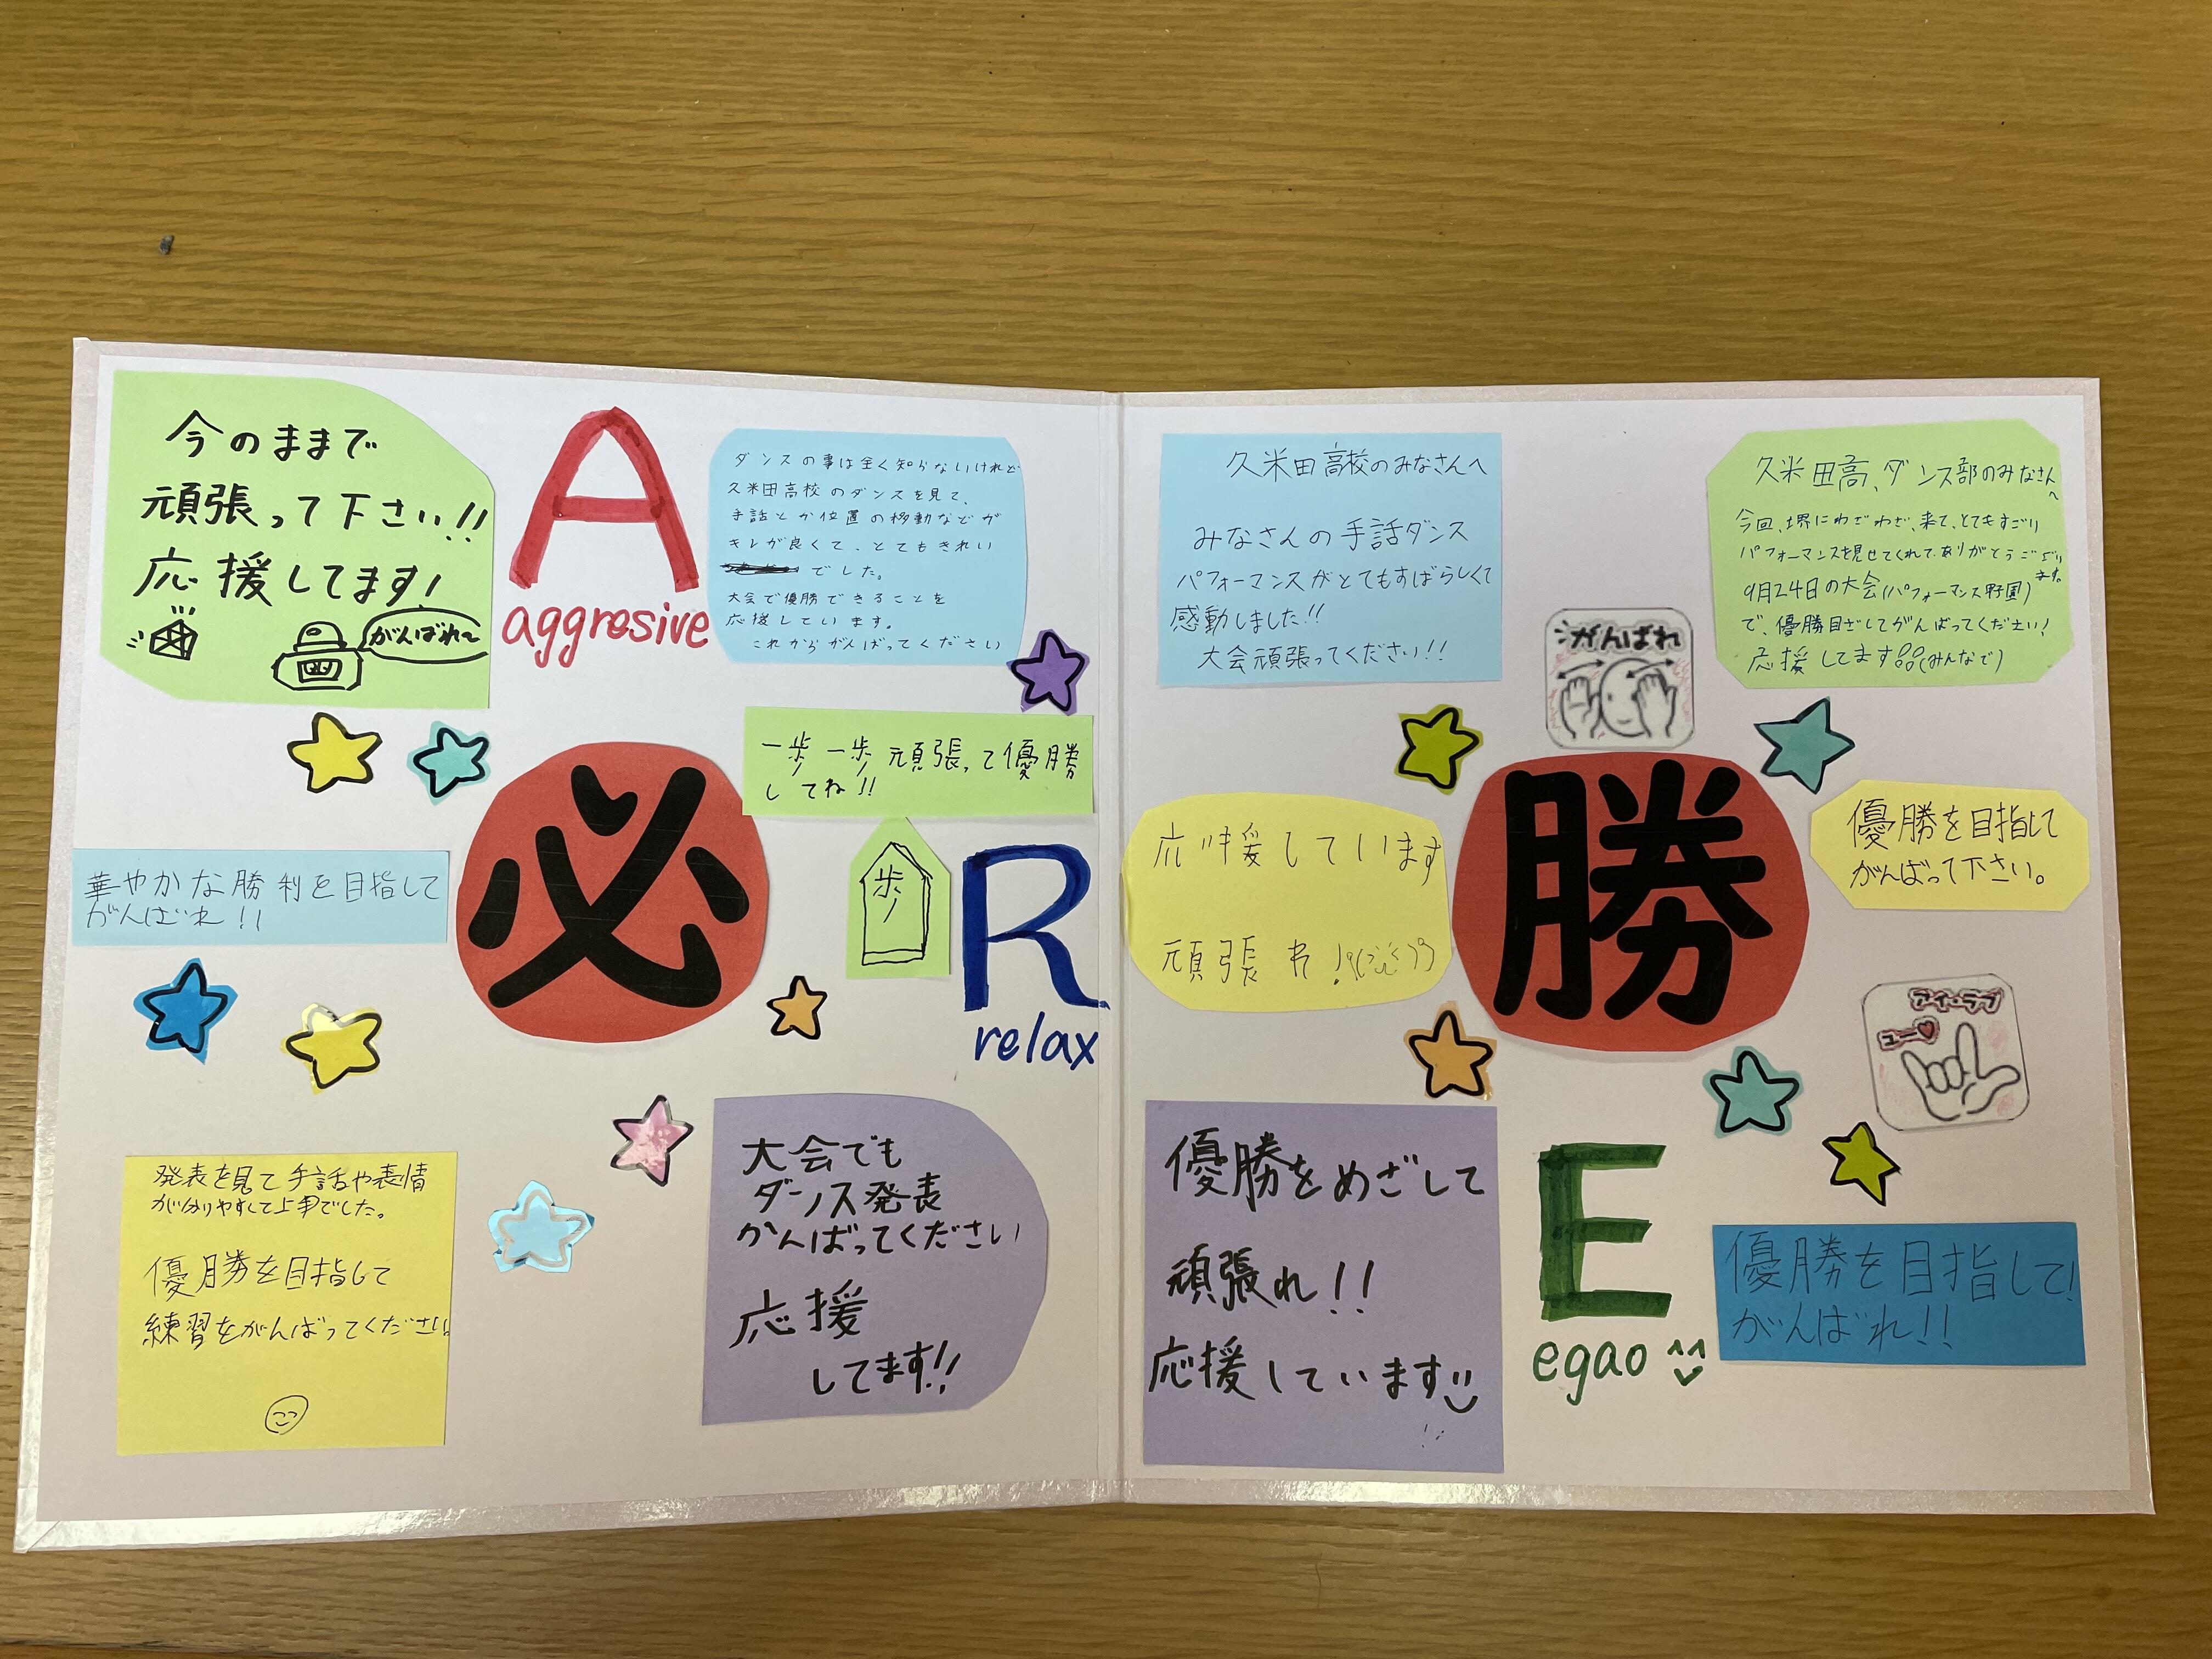 今のままで
頑張って下さい!!
応援してます!
がんばれ〜
A
aggresive
ダンスの事は全く知らないけれど
久米田高校のダンスを見て、
手話とか位置の移動などが
キレが良くて、とてもきれい
でした。
大会で優勝できることを
応援しています。
これからがんばってください
一歩一歩頑張って優勝
してね!!
歩
必
華やかな勝利を目指して
がんばれ!!
R
relax
発表を見て手話や表情
が分りやすくて上手でした。
優勝を目指して
練習をがんばってください
大会でも
ダンス発表
がんばってください
応援
してます!!
久米田高校のみなさんへ
みなさんの手話ダンス
パフォーマンスがとてもすばらしくて
感動しました!!
大会頑張ってください!!
がんばれ
久米田高、ダンス部のみなさんへ
今回、堺にわざわざ、来て、とてもすごい
パフォーマンスを見せてくれて、ありがとうございます。
9月24日の大会(パフォーマンス甲子園)
で、優勝目ざしてがんばってください!
応援してます(みんなで)
応援しています
頑張れ!
勝
優勝を目指して
がんばって下さい。
アイ・ラブ
ユー
優勝をめざして
頑張れ!!
応援しています
E
egao
優勝を目指して!
がんばれ!!